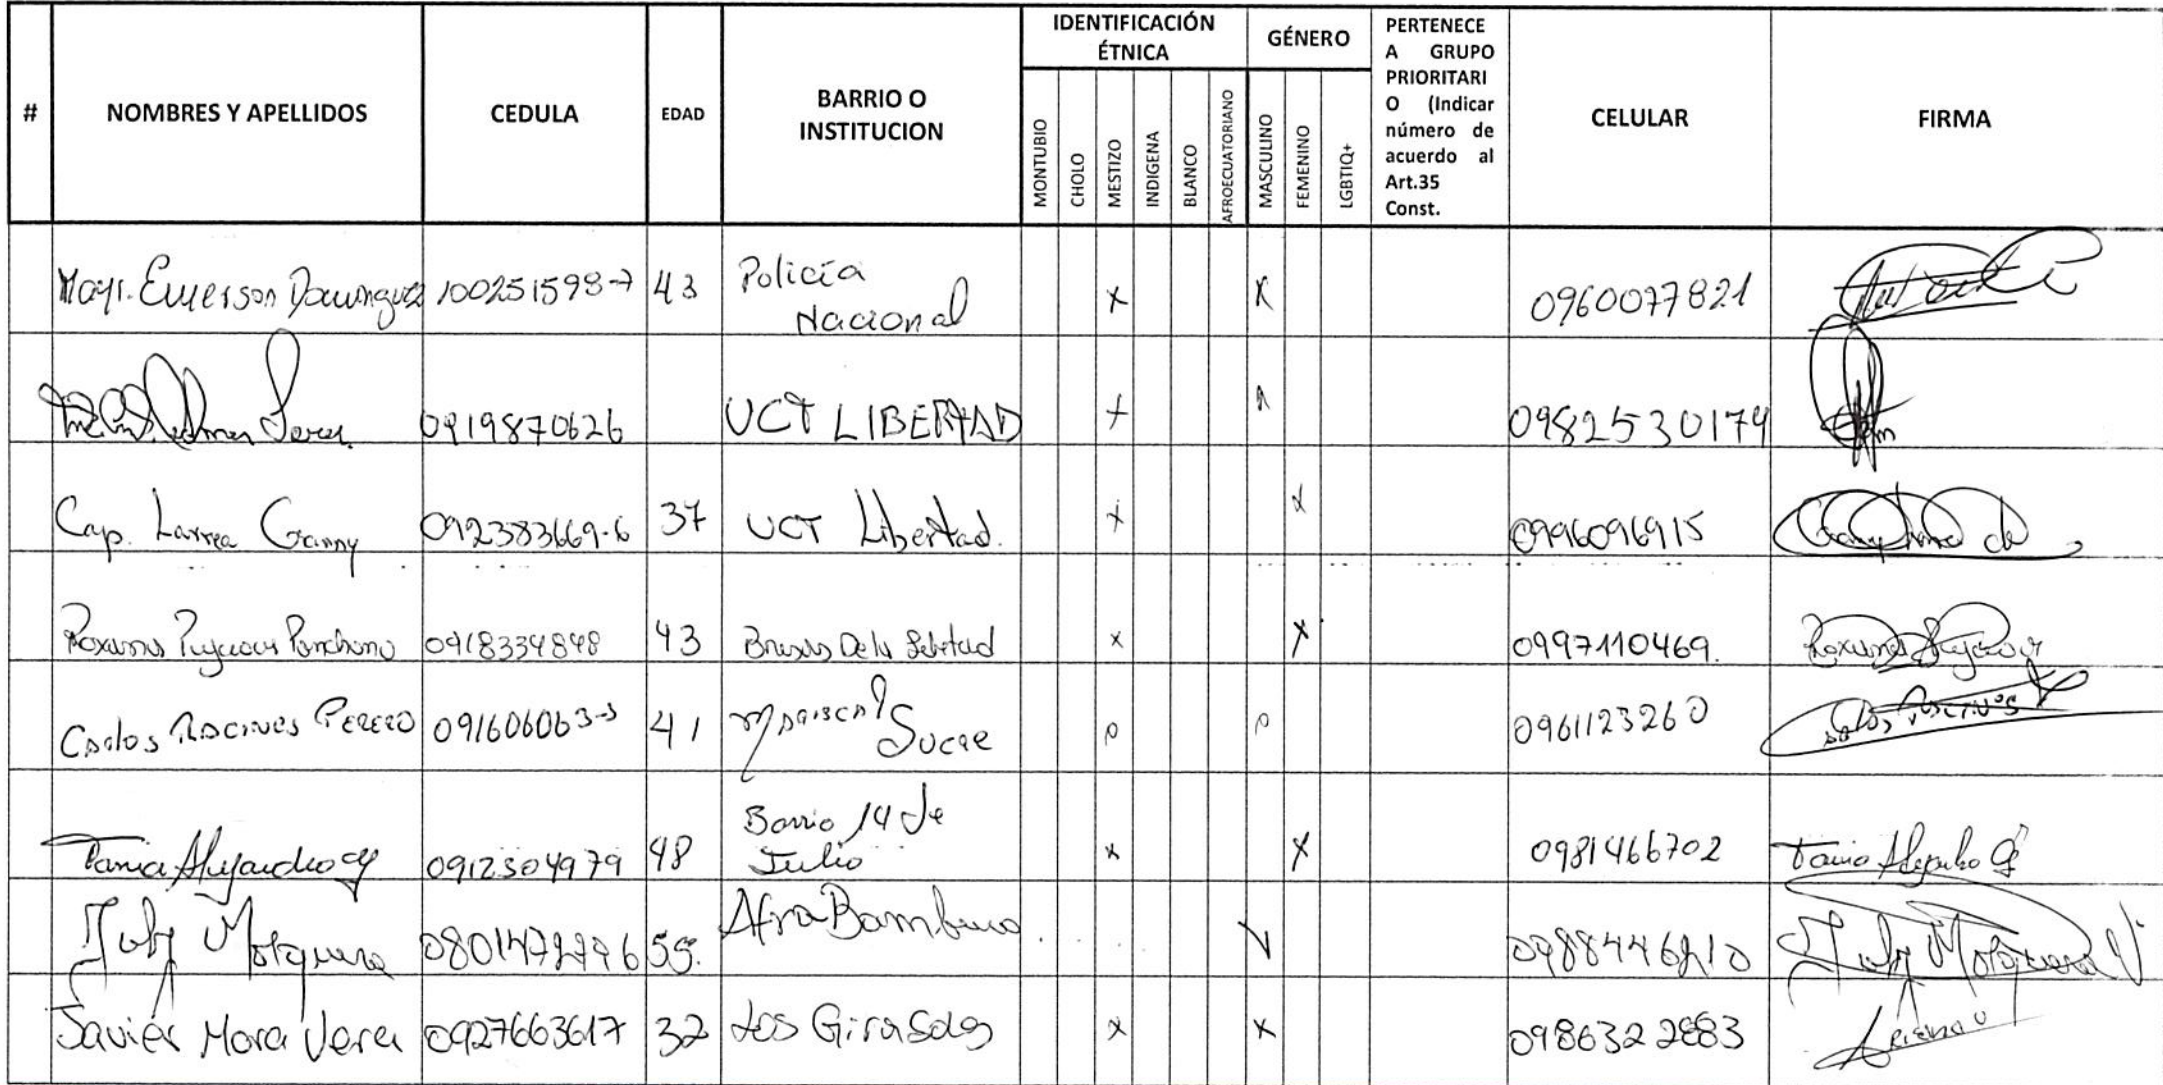 #
NOMBRES Y APELLIDOS
CEDULA
EDAD
BARRIO O
INSTITUCION
IDENTIFICACIÓN
ÉTNICA
MONTUBIO
CHOLO
MESTIZO
INDIGENA
BLANCO
AFROECUATORIANO
GÉNERO
MASCULINO
FEMENINO
LGBTIQ+
PERTENECE
A GRUPO
PRIORITARI
O (Indicar
número de
acuerdo al
Art.35
Const.
CELULAR
FIRMA
Emerson Dominguez 100251598-7 43 Policía
Nacional x x 0960077821
0919870626 UCT LIBERTAD x 0982530174
Cap. Larrea Genny 092383669-6 37 UCT Libertad. x x 0996096915
Roxana 0918334848 43 De la Libertad x x 0997110469.
Carlos PERERO 091606063-3 41 Mariscal
Sucre 0961123260
Tania Alejandro 0912304979 48 Barrio 14 de
Julio x x 0981466702 Tania Alejandro
Mosquera 55. Afro Bambuco Mosquera
Javier Mora Vera 0927663617 32 Los Girasoles x x 0986322883